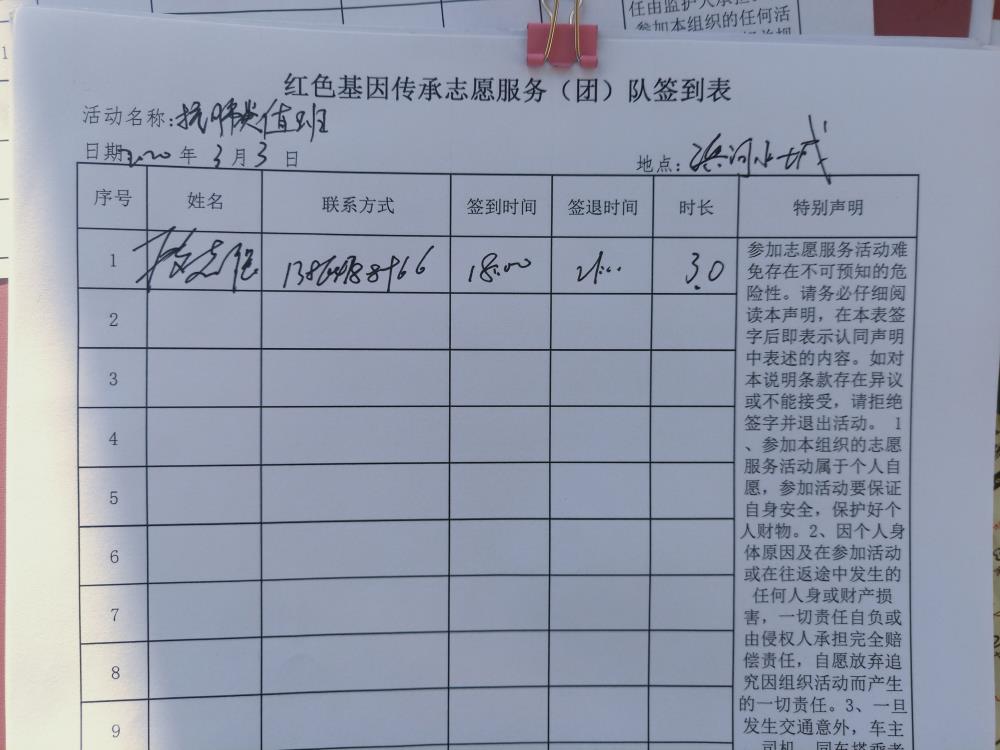 任由监护人承担
参加本组织的任何活
红色基因传承志愿服务（团）队签到表
活动名称：抗肺炎值班
日期2020年3月3日
地点：滨河水城
序号 姓名 联系方式 签到时间 签退时间 时长 特别声明
1 18:00 21:00 3.0
2
3
4
5
6
7
8
9
参加志愿服务活动难
免存在不可预知的危
险性。请务必仔细阅
读本声明，在本表签
字后即表示认同声明
中表述的内容。如对
本说明条款存在异议
或不能接受，请拒绝
签字并退出活动。 1
、参加本组织的志愿
服务活动属于个人自
愿，参加活动要保证
自身安全，保护好个
人财物。2、因个人身
体原因及在参加活动
或在往返途中发生的
任何人身或财产损
害，一切责任自负或
由侵权人承担完全赔
偿责任，自愿放弃追
究因组织活动而产生
的一切责任。3、一旦
发生交通意外，车主